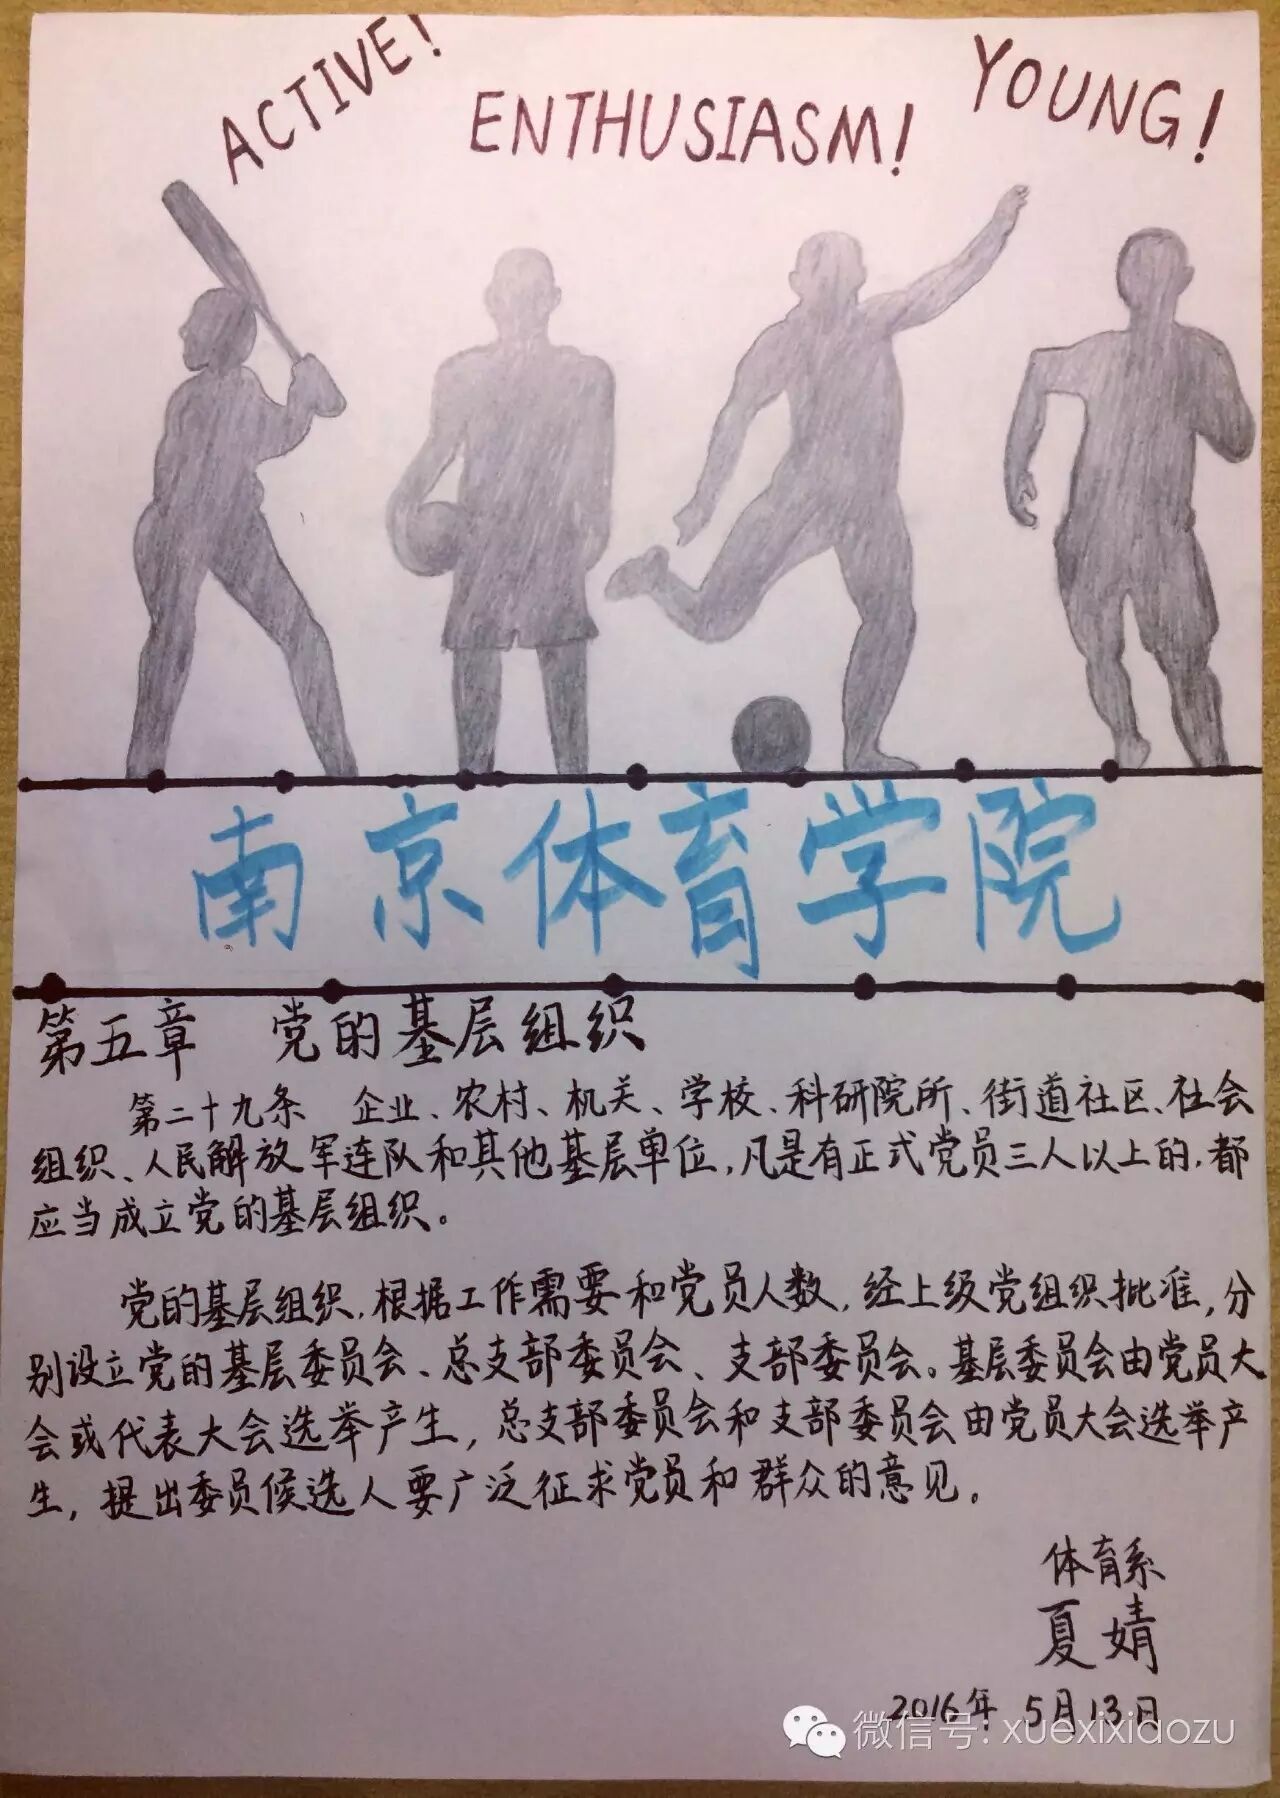 ACTIVE!
ENTHUSIASM!
YOUNG!
南京体育学院
第五章 党的基层组织
第二十九条 企业、农村、机关、学校、科研院所、街道社区、社会
组织、人民解放军连队和其他基层单位,凡是有正式党员三人以上的,都
应当成立党的基层组织。
党的基层组织,根据工作需要和党员人数,经上级党组织批准,分
别设立党的基层委员会、总支部委员会、支部委员会。基层委员会由党员大
会或代表大会选举产生,总支部委员会和支部委员会由党员大会选举产
生,提出委员候选人要广泛征求党员和群众的意见。
体育系
夏婧
2016年 5月13日
微信号: xuexixiaozu